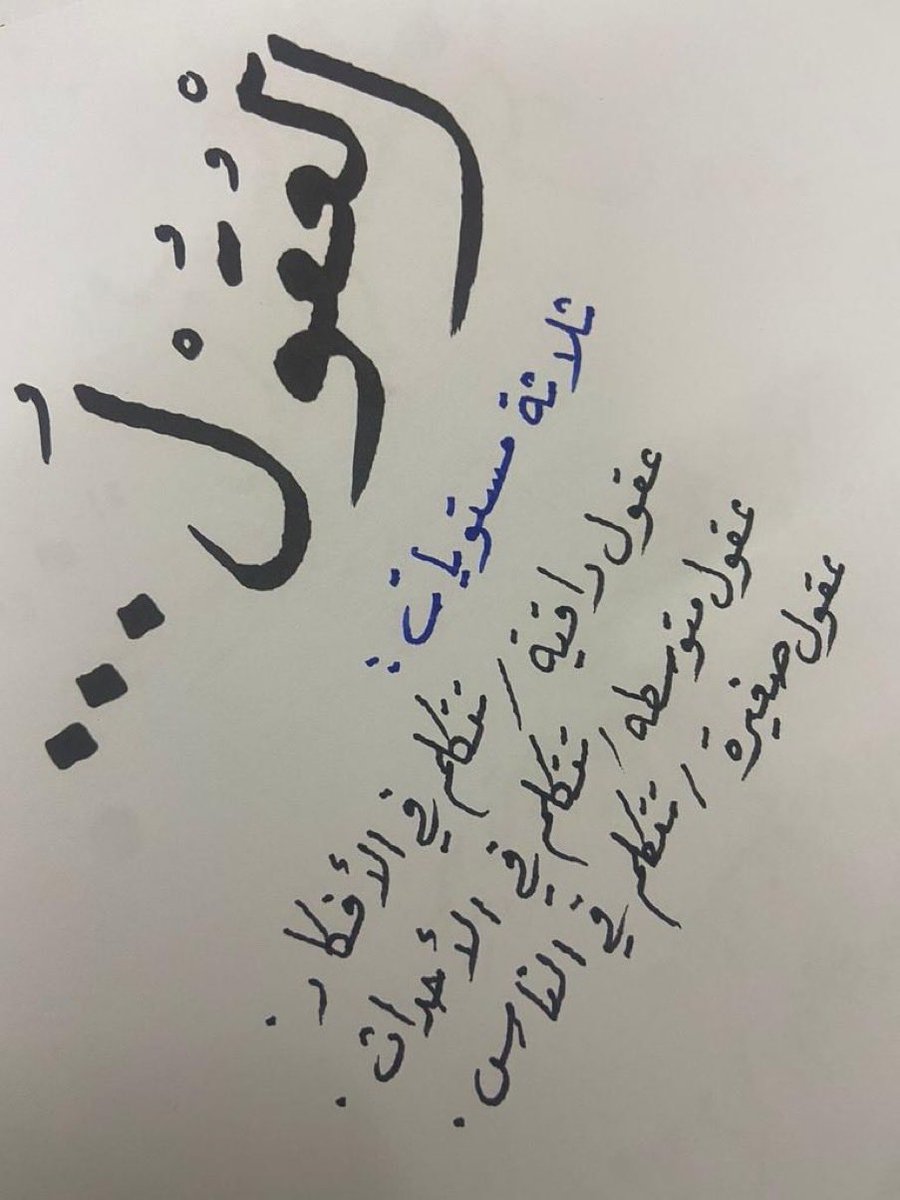 الْعُقُوْلُ...
ثلاثة مستويات:
عقول راقية / تتكلم في الأفكار.
عقول متوسطه / تتكلم في الأحداث.
عقول صغيرة / تتكلم في الناس.